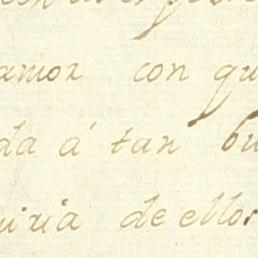 amor con qu
da á tan bu
uiria de ellos